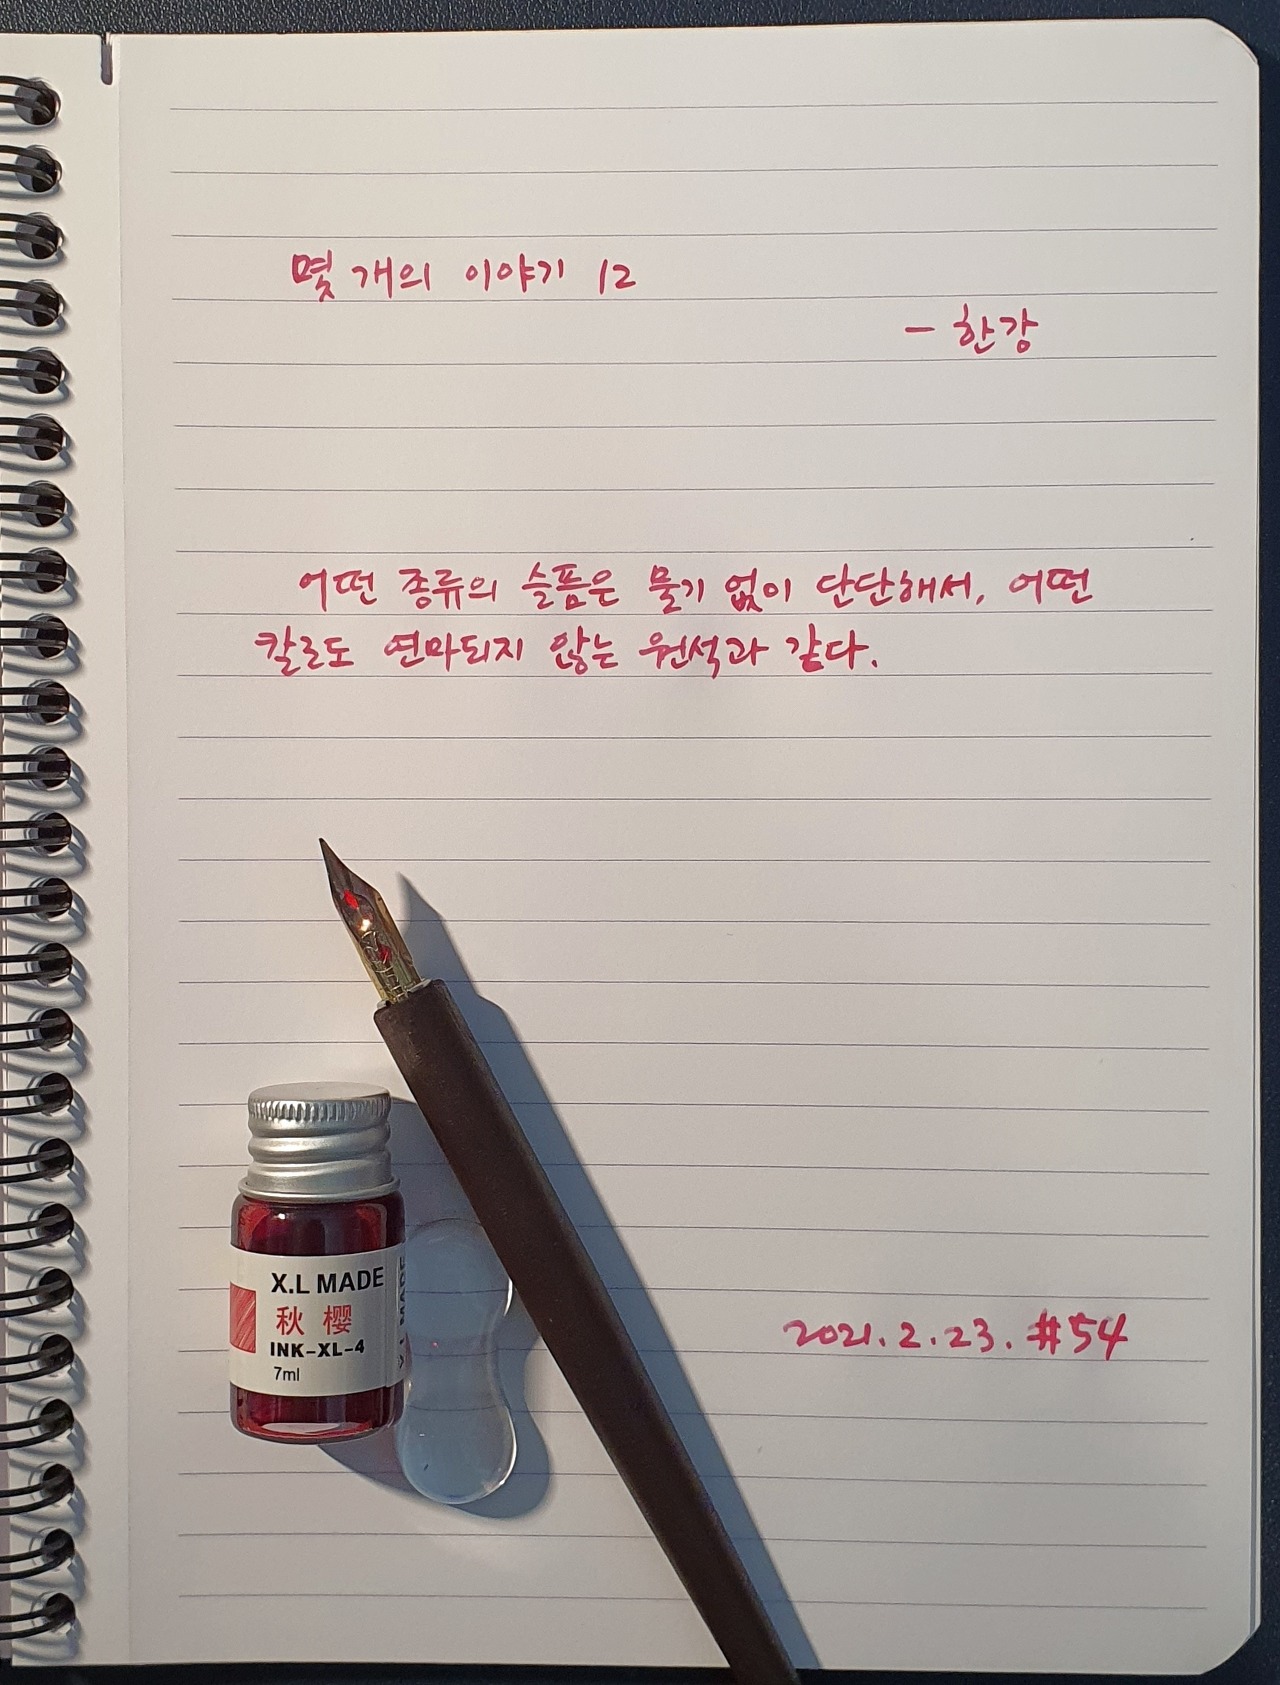 몇 개의 이야기 12
- 한강
어떤 종류의 슬픔은 물기 없이 단단해서, 어떤
칼로도 연마되지 않는 원석과 같다.
X.L MADE
秋 樱
INK-XL-4
7ml
2021.2.23. #54